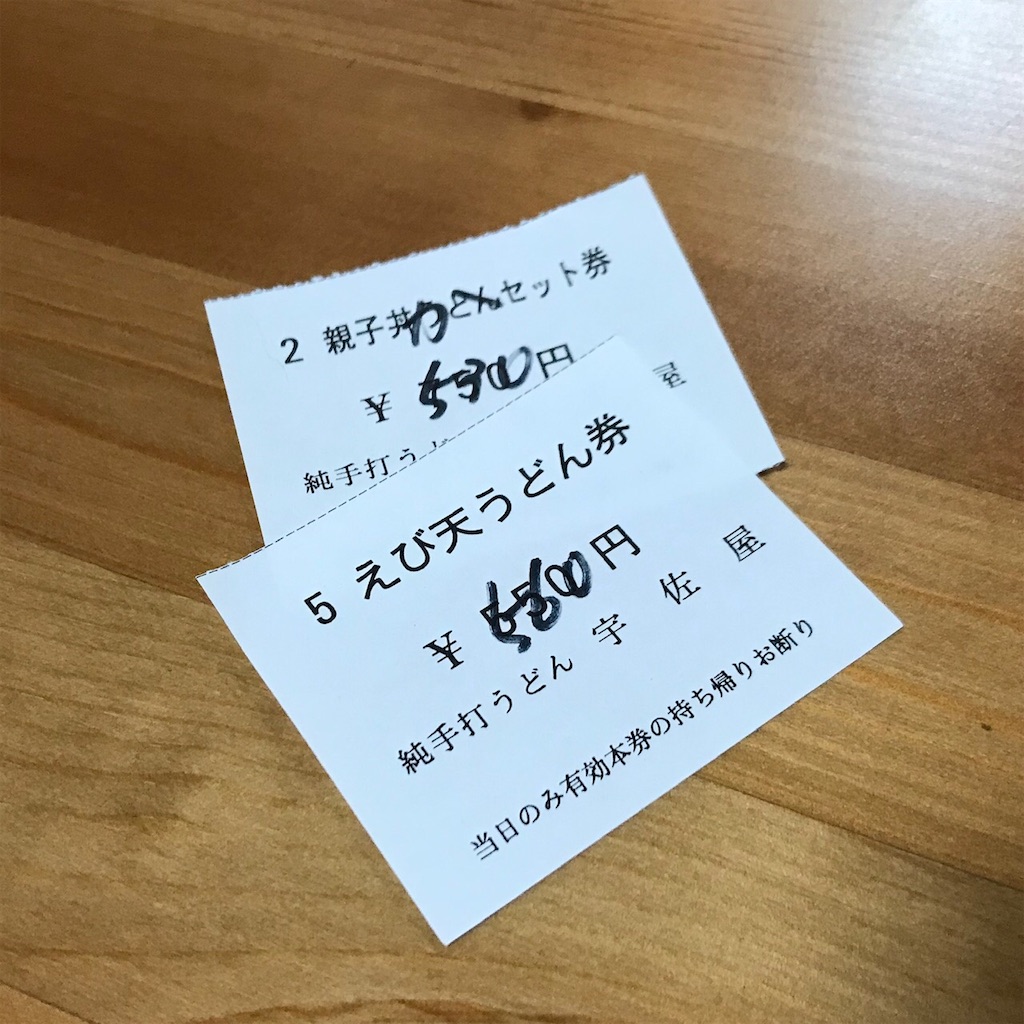 2 親子丼 セット券
¥ 円
純手打う 屋
5 えび天うどん券
¥ 円
純手打うどん 宇佐屋
当日のみ有効本券の持ち帰りお断り